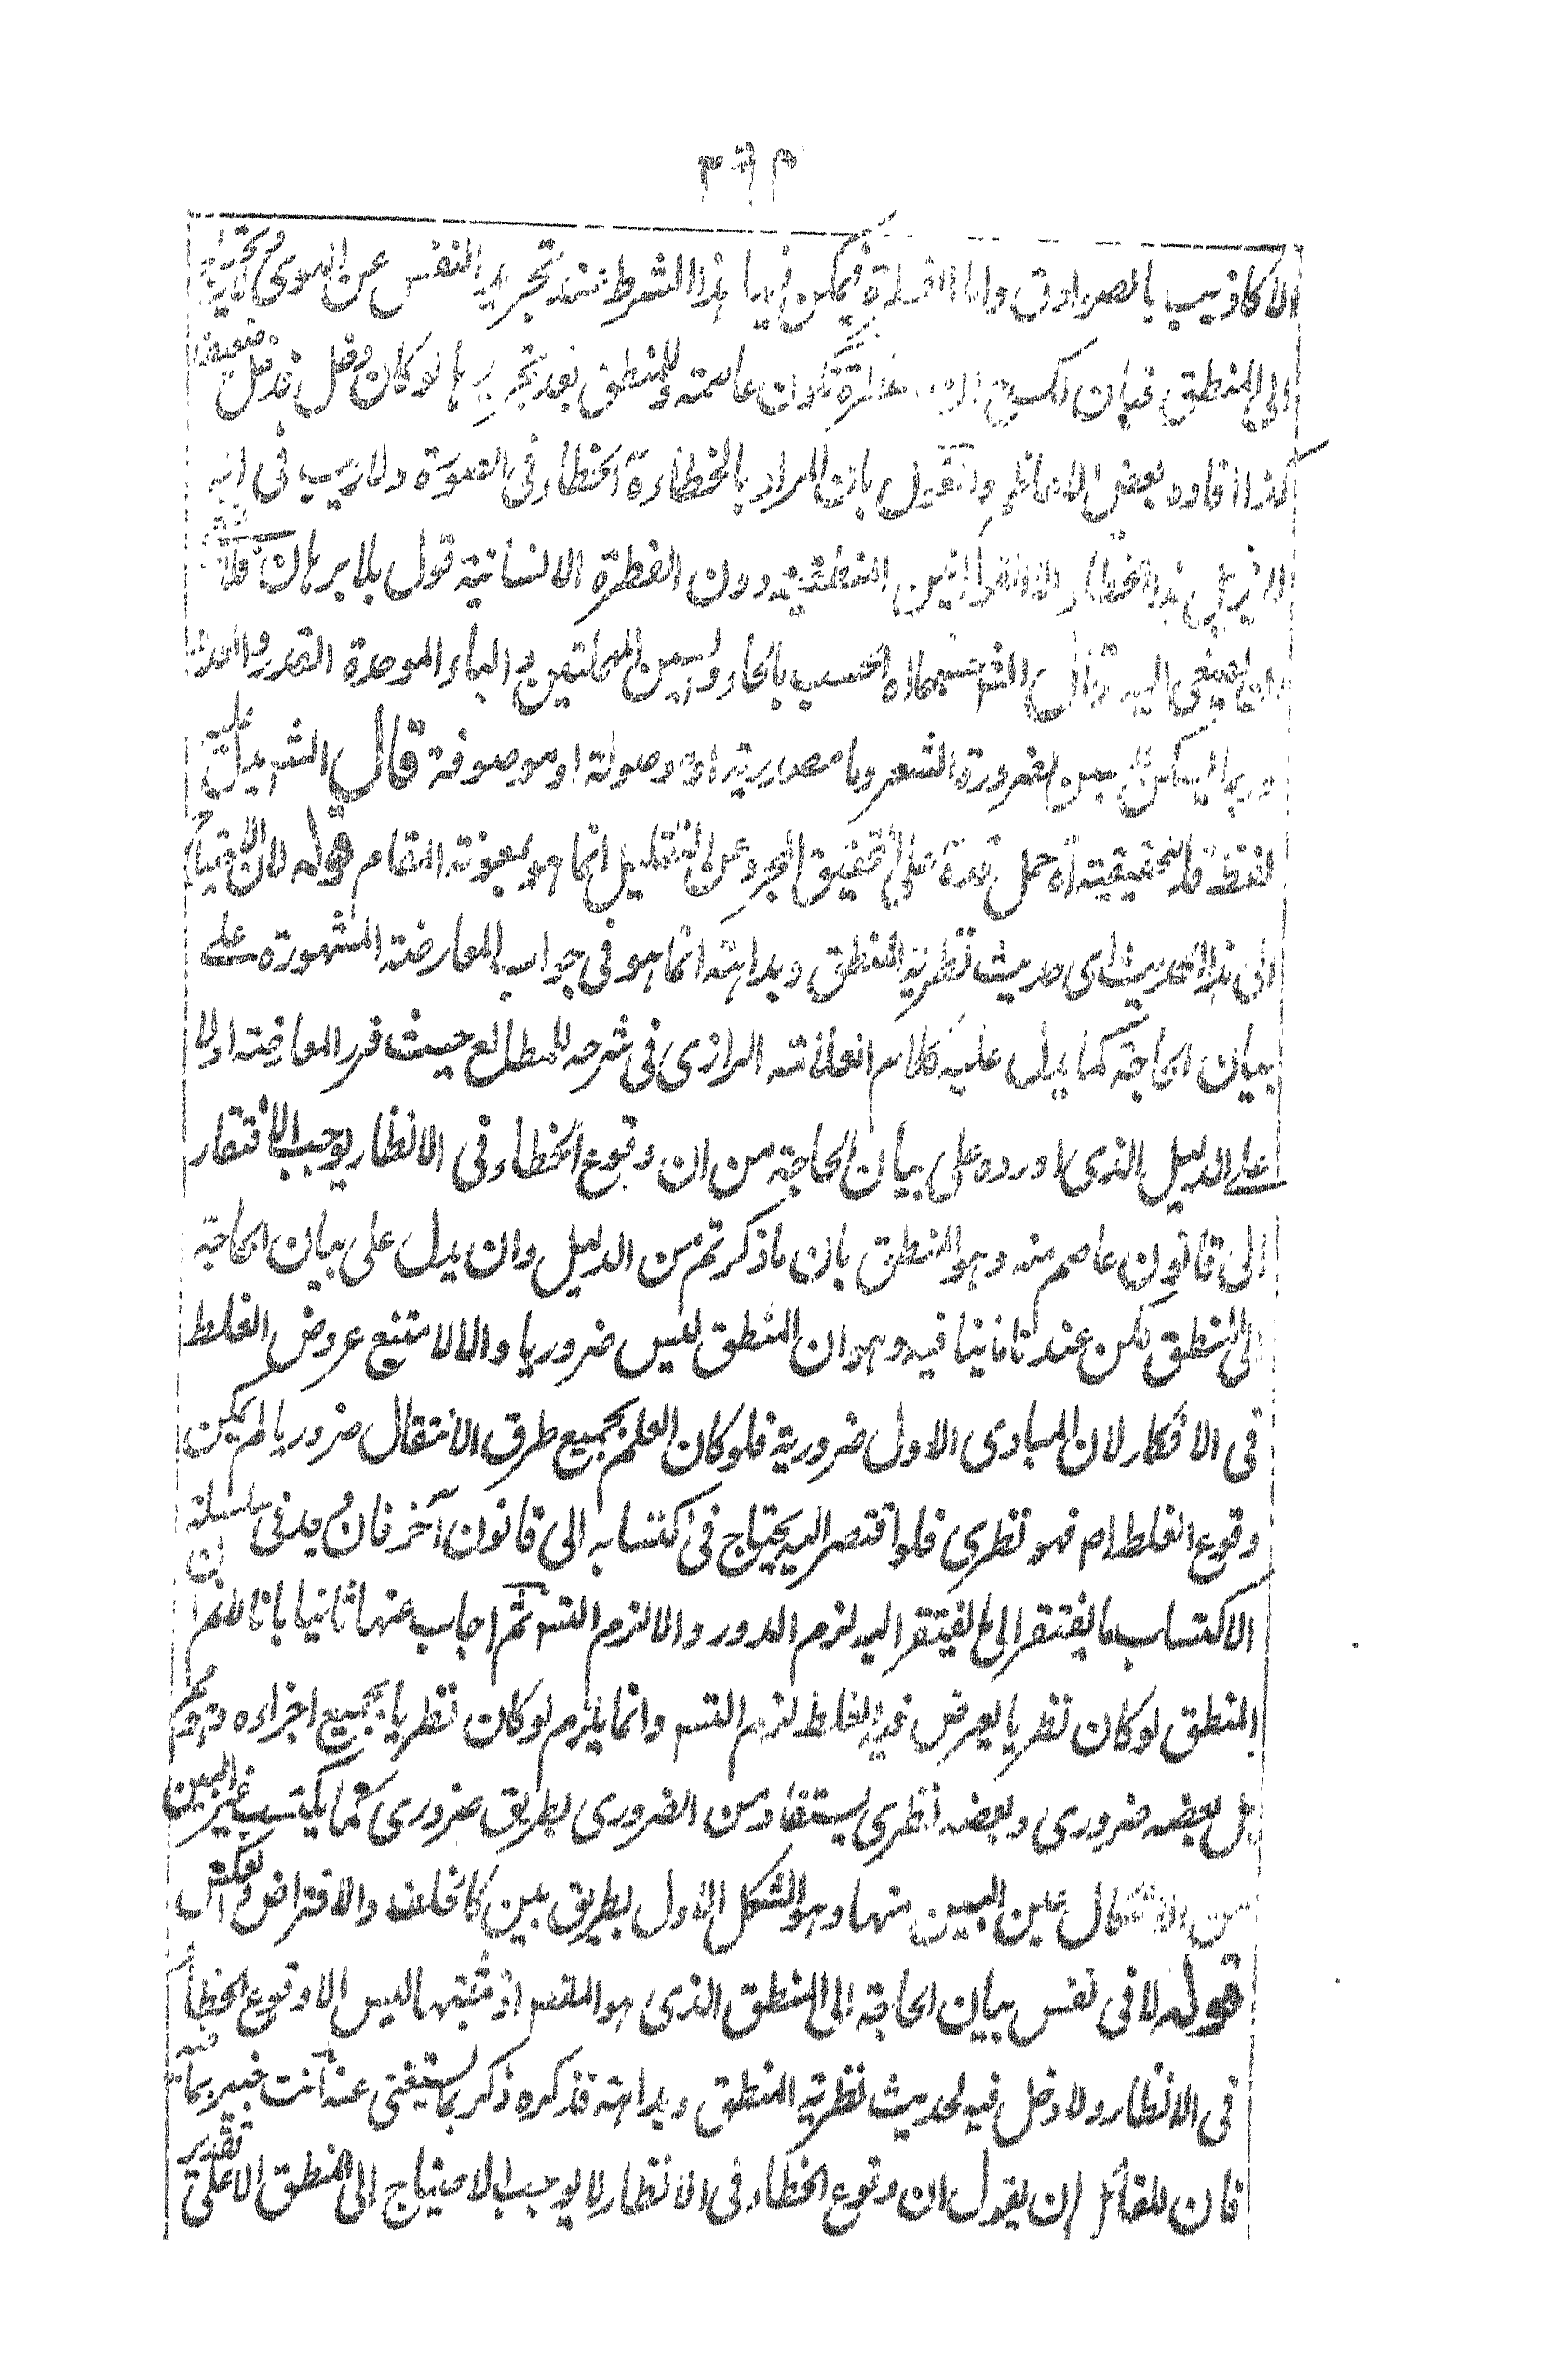 الاكاذيب بالصوادق واما الفطرة فيمكن فيها هذا الشرط عند تجريد النفس عن الهوى
الى المنطق فبان لكسبى الفطرة تكون عاصمة وللمنطق بعد تجريدها لو كان دخل فدخل ضعيف
كذا افاده بعض الاعاظم والقول بان المراد بالخطاء الخطاء فى الصورة ولا ريب فى انه
لا يزيل هذا الخطاء الا القوانين المنطقية دون الفطرة الانسانية قول بلا برهان فلا
يصغى اليه قال الشم حسبما اه الحسب بالحاء والسين المهملتين و الباء الموحدة القدر والعدد
وربما يسكن السين لضرورة الشعر وما مصدرية او موصولة او موصوفة قال الشم يدل عليه
لفظة قد التحقيقية اه حمل قد على التحقيق المجرد عن التقليل انما هو بمعونة المقام قوله لان الاحتياج
الى هذا الحديث اى حديث نظرية المنطق وبداهته انما هو فى جواب المعارضة المشهورة على
بيان الحاجة كما يدل عليه كلام العلامة الرازى فى شرحه للمطالع حيث قرر المعارضة اولا
على الدليل الذى اورده على بيان الحاجة من ان وقوع الخطاء فى الانظار يوجب الافتقار
الى قانون عاصم منه وهو المنطق بان ما ذكرتم من الدليل وان يدل على بيان الحاجة
الى المنطق لكن عندنا ما ينافيه وهو ان المنطق ليس ضروريا والا لامتنع عروض الغلط
فى الافكار لان المبادى الاول ضرورية فلو كان العلم بجميع طرق الانتقال ضروريا لم يمكن
وقوع الغلط ام فهو نظرى فلو افتقر اليه يحتاج فى اكتسابه الى قانون آخر فان وجد فى سلسلة
الاكتساب ما يفتقر الى ما يفتقر اليه لزم الدور والا لزم التسم ثم اجاب عنها ثانيا بانا لانم ان
المنطق لو كان نظريا يعرض فيه الغلط لزم التسم وانما يلزم لو كان نظريا بجميع اجزاءه وهو مم
بل بعضه ضرورى وبعضه نظرى يستفاد من الضرورى بطريق ضرورى كما يكتسب غير البين
من الاشكال عن البين منها وهو الشكل الاول بطريق بين كالخلف والافتراض والعكس
قوله لا فى نفس بيان الحاجة الى المنطق الذى هو المقصم اذ مثبتها ليس الا وقوع الخطأ
فى الانظار ولا دخل فيه لحديث نظرية المنطق وبداهته فذكره ذكر بما يستغنى عنه انت خبير بما فيه
فان للقائل ان يقول ان وقوع الخطاء فى الانظار لا يوجب الاحتياج الى المنطق الا على تقدير